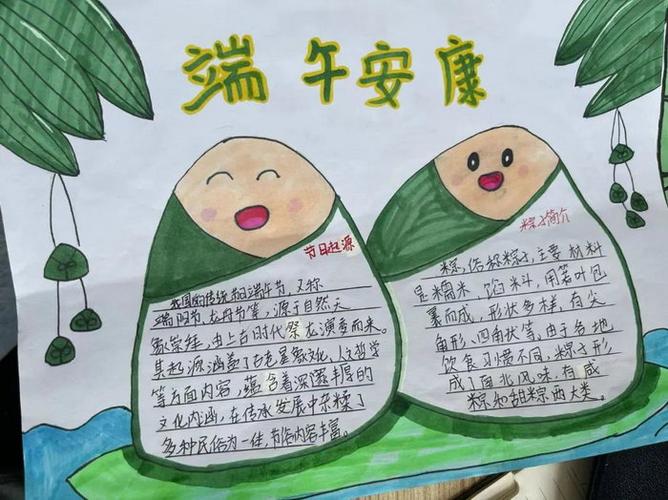 端午安康
节日起源
我国的传统节日端午节，又称
端阳节，龙舟节等，源于自然天
象崇拜，由上古时代祭龙演变而来。
其起源涵盖了古老星象文化，人文哲学
等方面内容，蕴含着深邃丰厚的
文化内涵，在传承发展中杂糅了
多种民俗为一体，节俗内容丰富。
粽子简介
粽，俗称粽子，主要材料
是糯米，馅料，用箬叶包
裹而成，形状多样，有尖
角形、四角状等，由于各地
饮食习惯不同，粽子形
成了南北风味，有咸
粽和甜粽两大类。